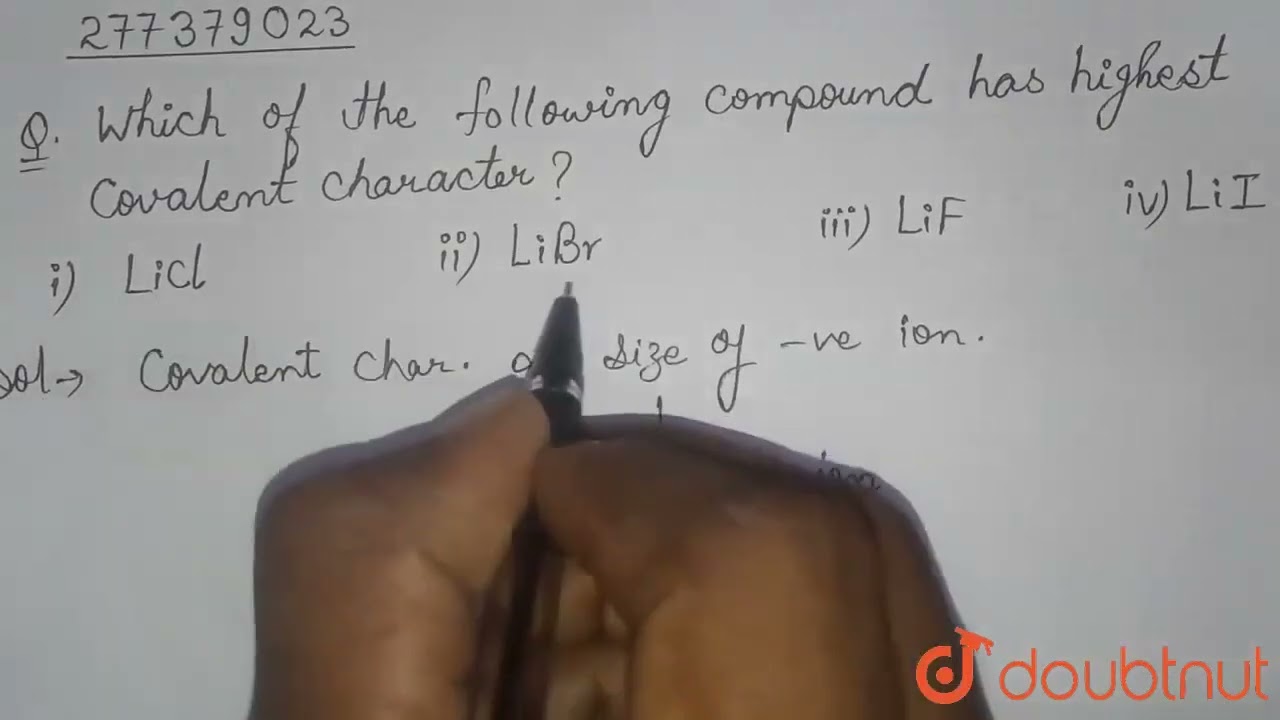 277379023
Q. Which of the following compound has highest
Covalent character?
i) LiCl ii) LiBr iii) LiF iv) LiI
Sol→ Covalent Char. size of -ve ion.
ion
doubtnut